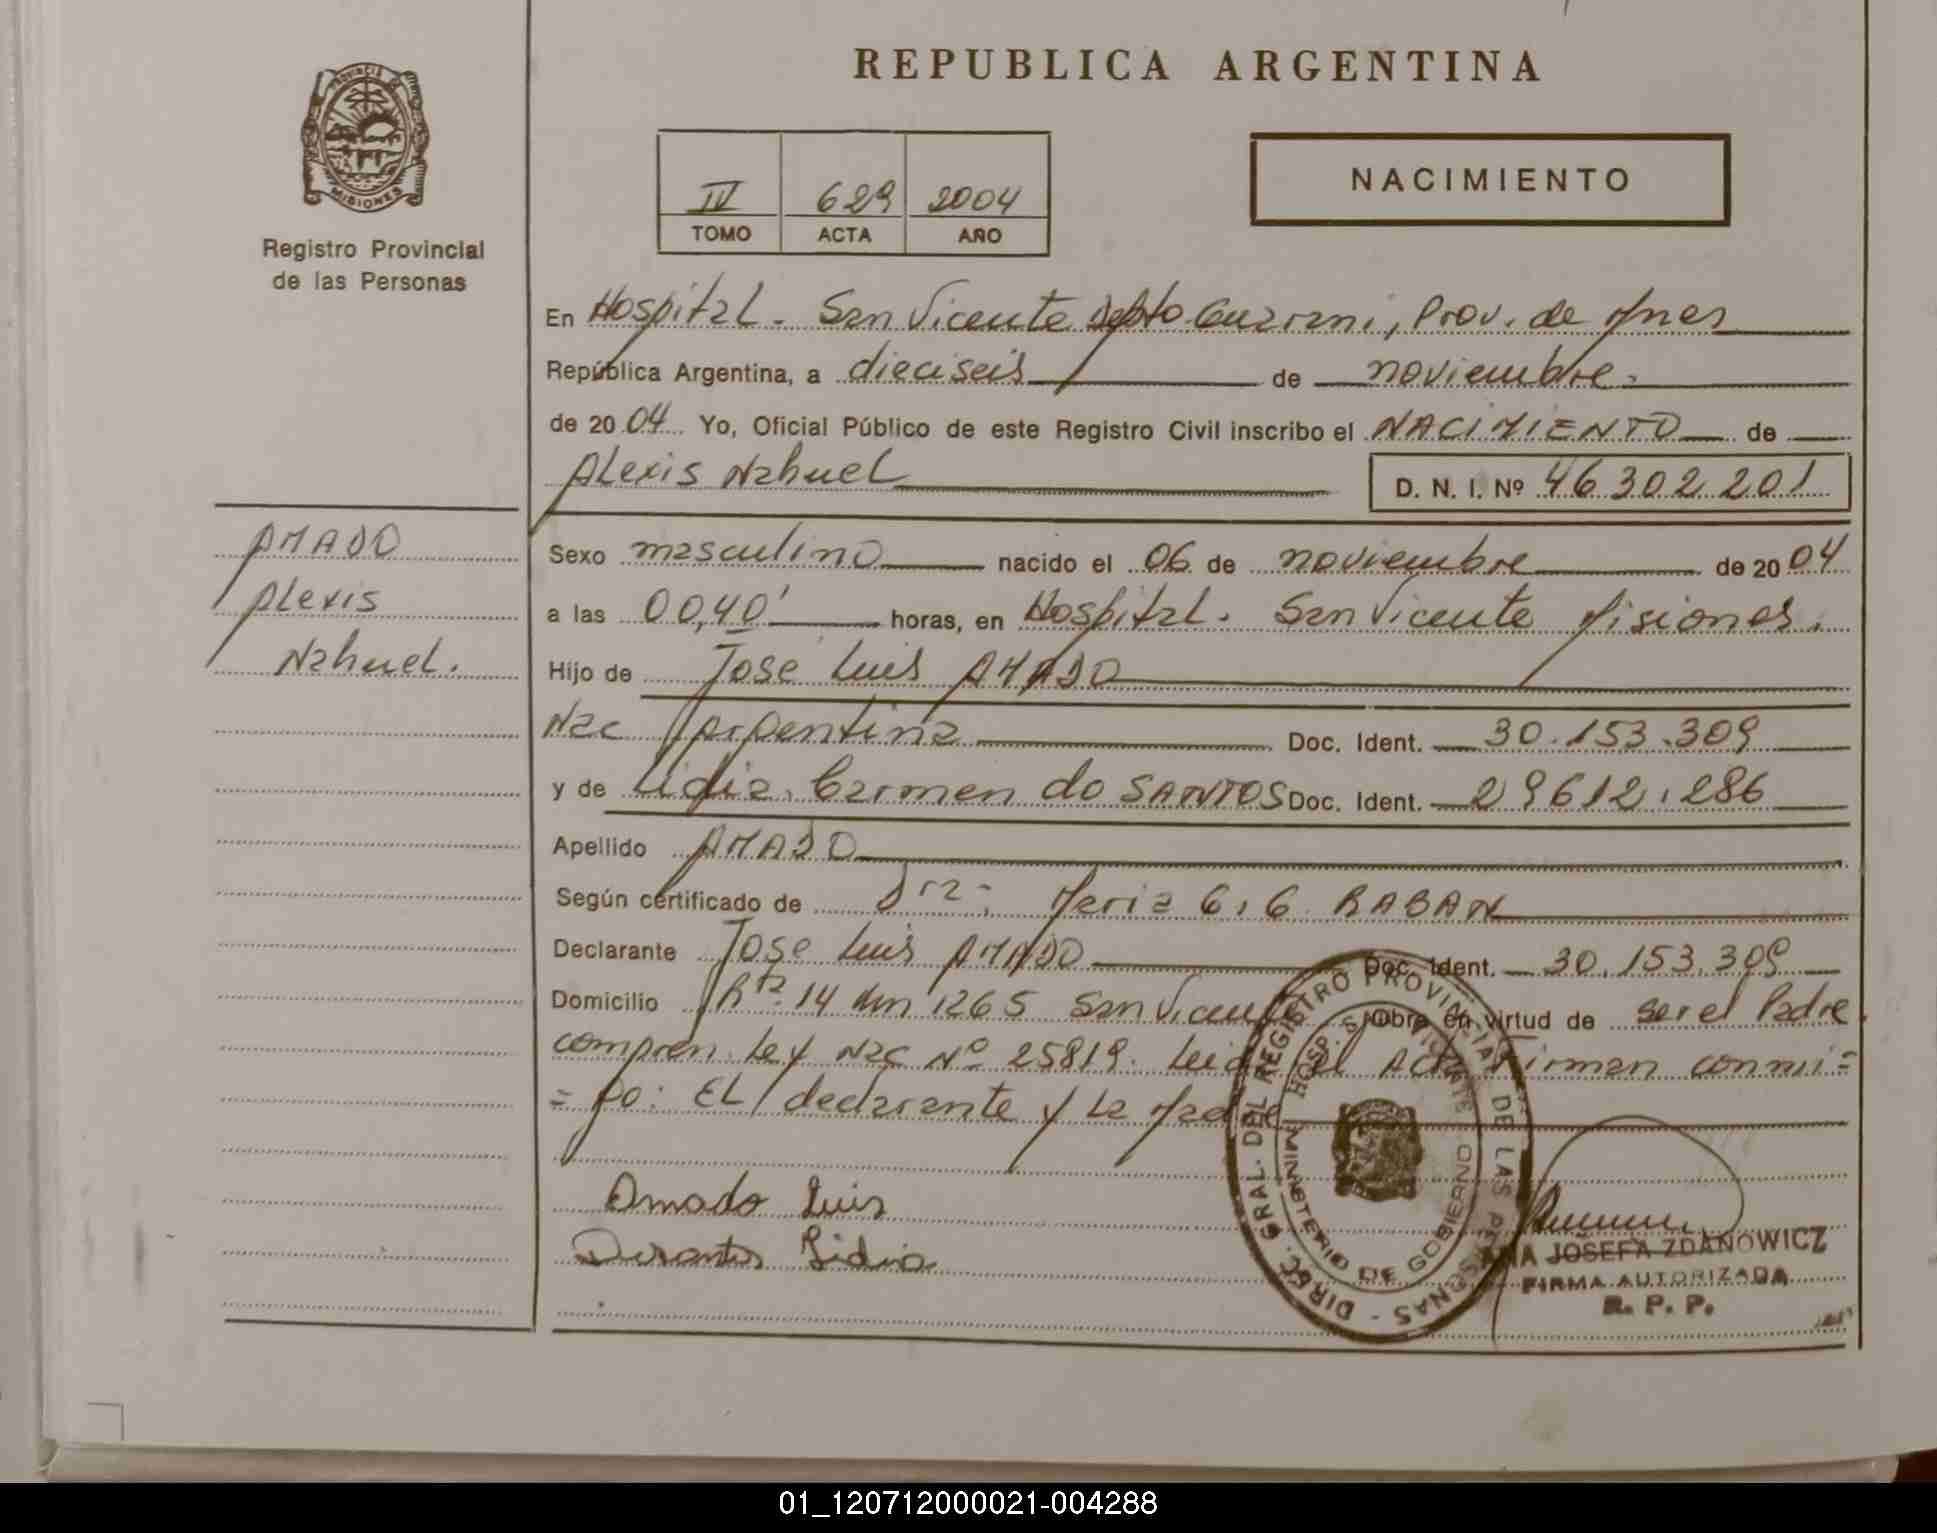 REPUBLICA ARGENTINA
PROVINCIA DE
MISIONES
Registro Provincial
de las Personas
IV 629 2004
TOMO ACTA AÑO
NACIMIENTO
En Hospital. San Vicente Depto. Guarani, Prov. de Mnes
República Argentina, a dieciseis de noviembre.
de 2004 Yo, Oficial Público de este Registro Civil inscribo el NACIMIENTO de
Alexis Nahuel D. N. I. Nº 46 302 201
AMADO
Alexis
Nahuel.
Sexo masculino nacido el 06 de noviembre de 2004
a las 00,40' horas, en Hospital. San Vicente Misiones.
Hijo de Jose Luis AMADO
Nac Argentina Doc. Ident. 30.153.309
y de Lidia Carmen do SANTOS Doc. Ident. 29612.286
Apellido AMADO
Según certificado de Dra: Maria G. G. RABAN
Declarante Jose Luis AMADO Doc. Ident. 30.153.309
Domicilio Rta. 14 Km 1265 San Vicente Obra en virtud de ser el Padre
compren. Ley Nac Nº 25819. Leida el Acta Firman conmi=
=go: EL declarante y La Madre
Amado Luis
Dusantos Lidia
DIREC. GRAL. DEL REGISTRO PROVINCIAL DE LAS PERSONAS -
HOSP. S. VICENTE
MINISTERIO DE GOBIERNO
ANA JOSEFA ZDANOWICZ
FIRMA AUTORIZADA
R. P. P.
01_120712000021-004288